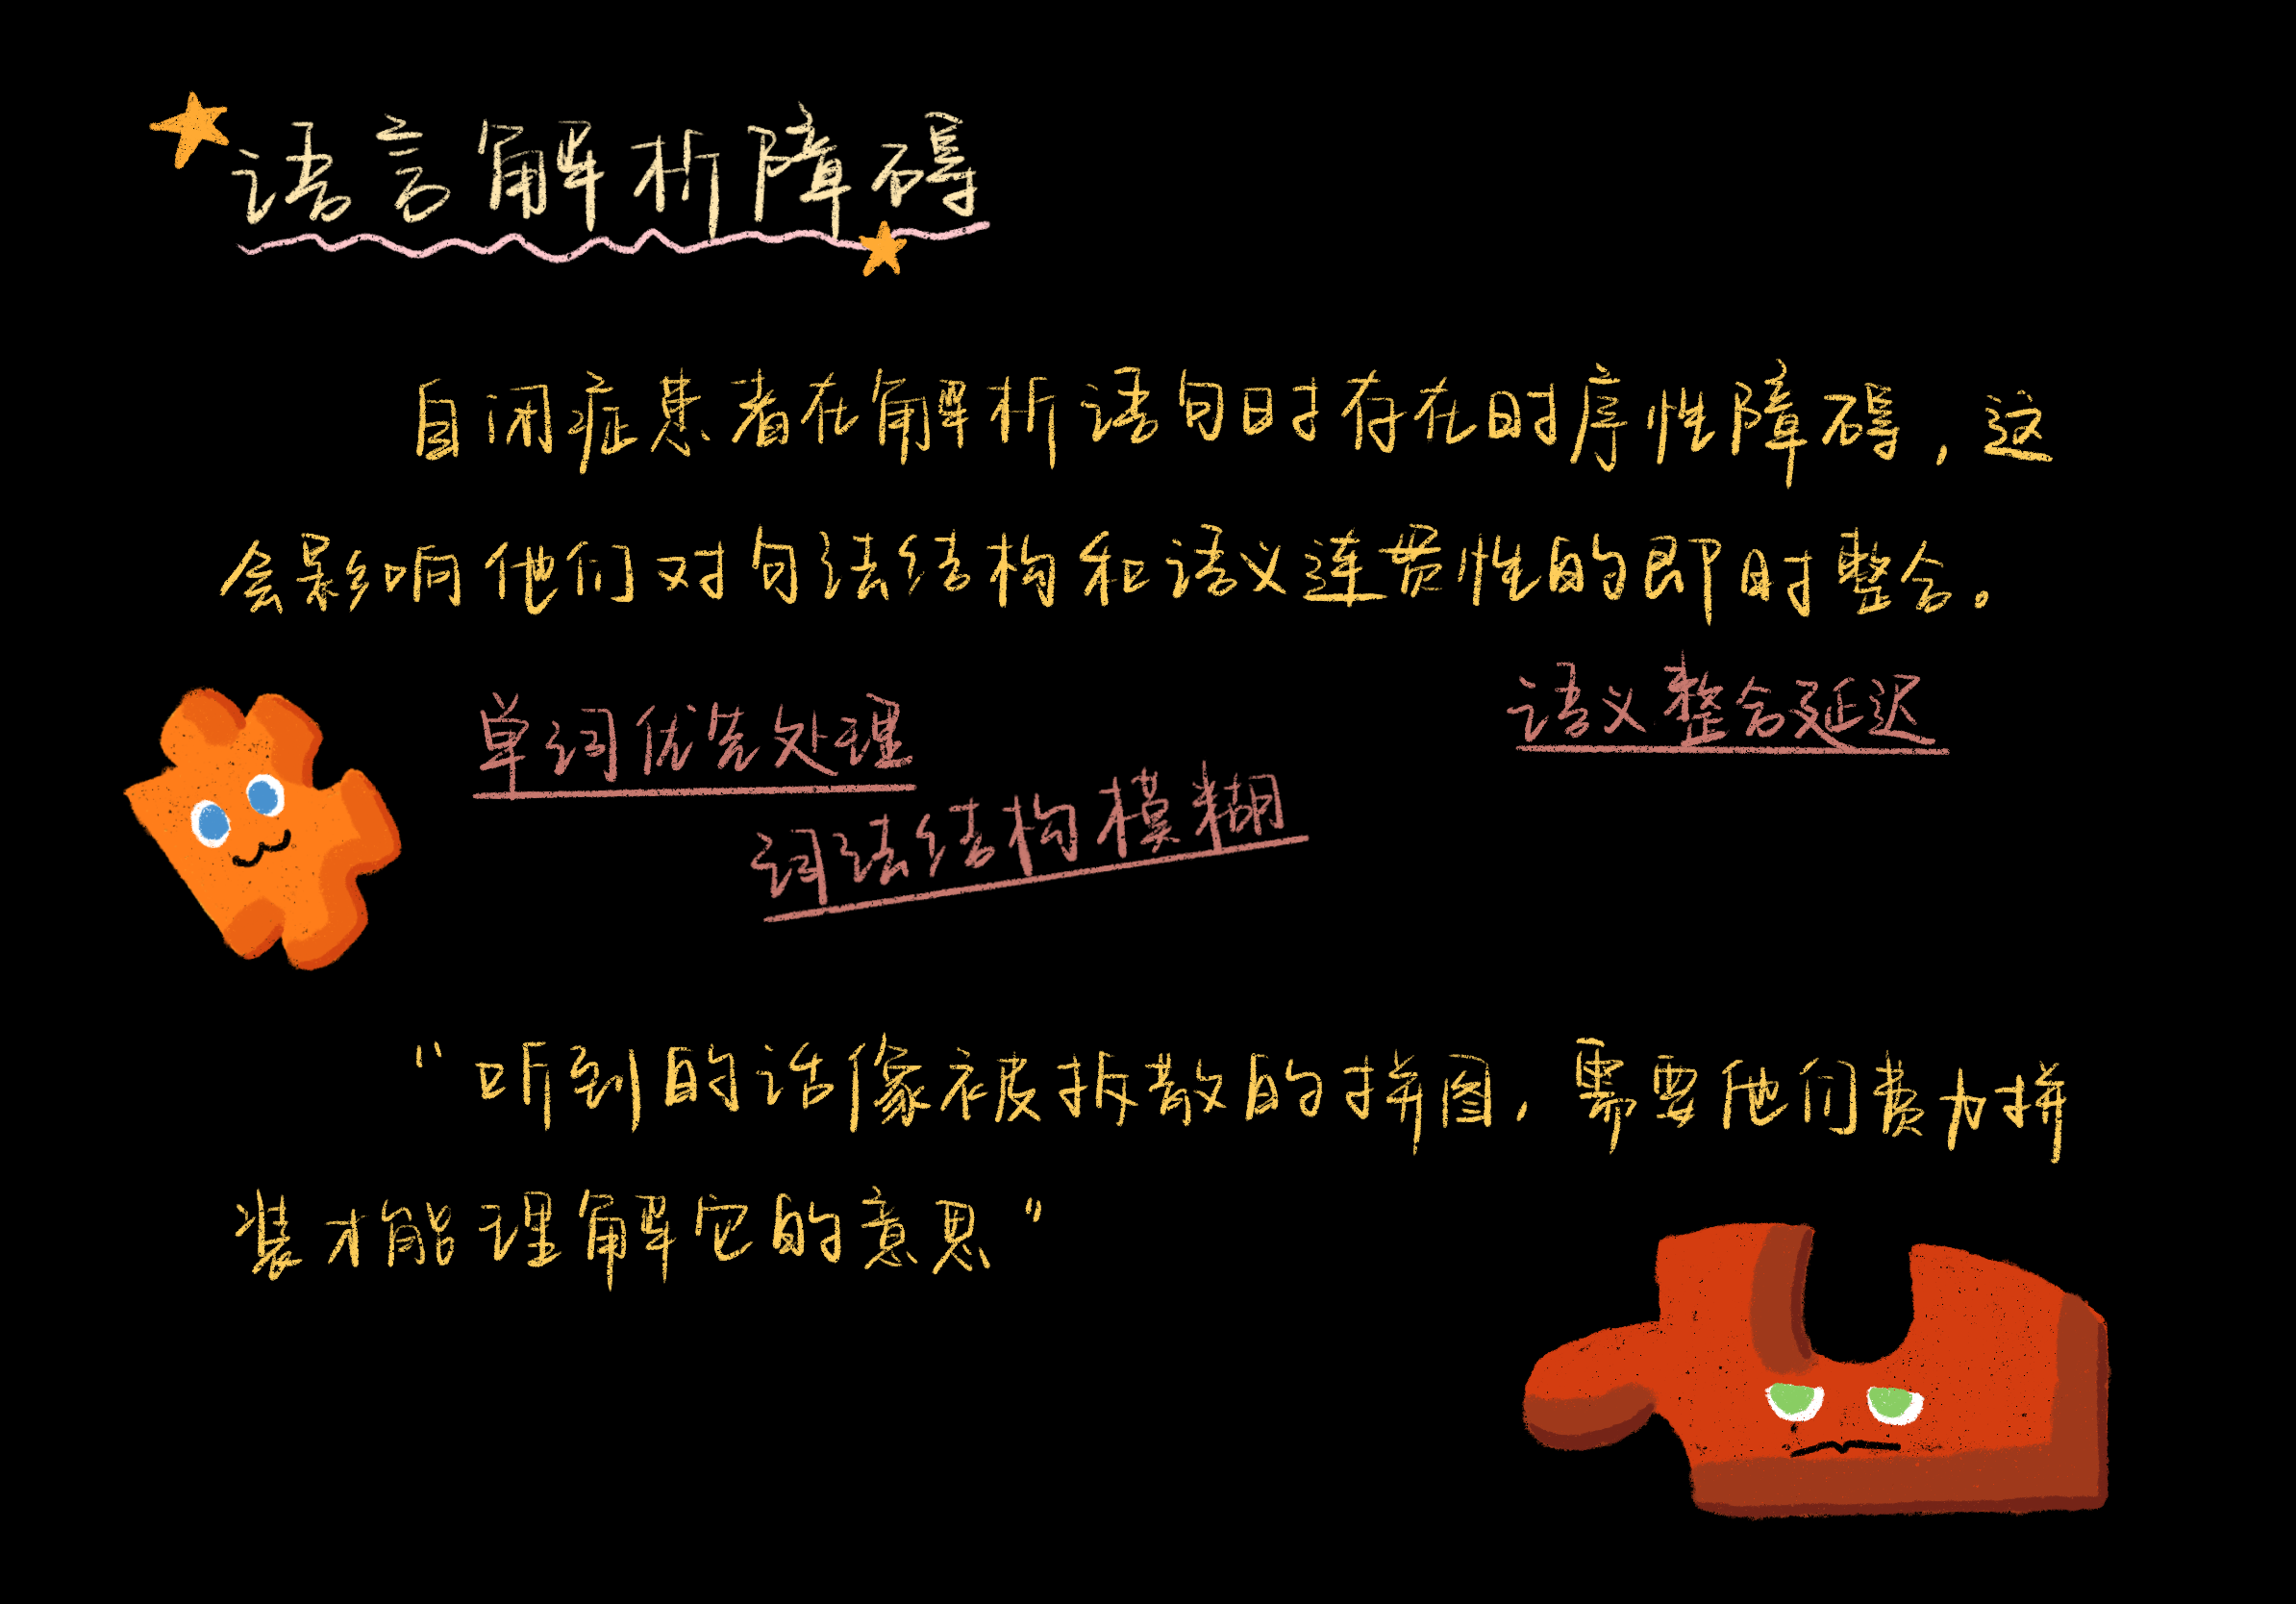 语言解析障碍
自闭症患者在解析语句时存在时序性障碍，这
会影响他们对句法结构和语义连贯性的即时整合。
语义整合延迟
单词优先处理
词法结构模糊
“听到的话像被拆散的拼图，需要他们费力拼
装才能理解它的意思”